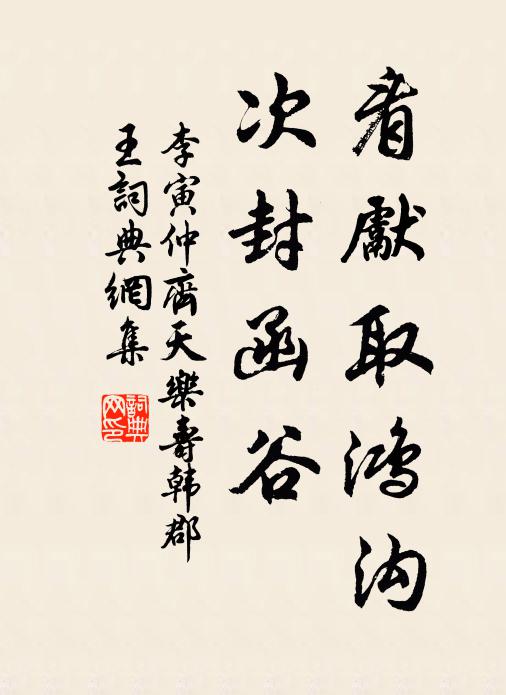 看獻取鴻沟
次封函谷
李寅仲齊天樂壽韩郡
王詞典網集
詞典网印